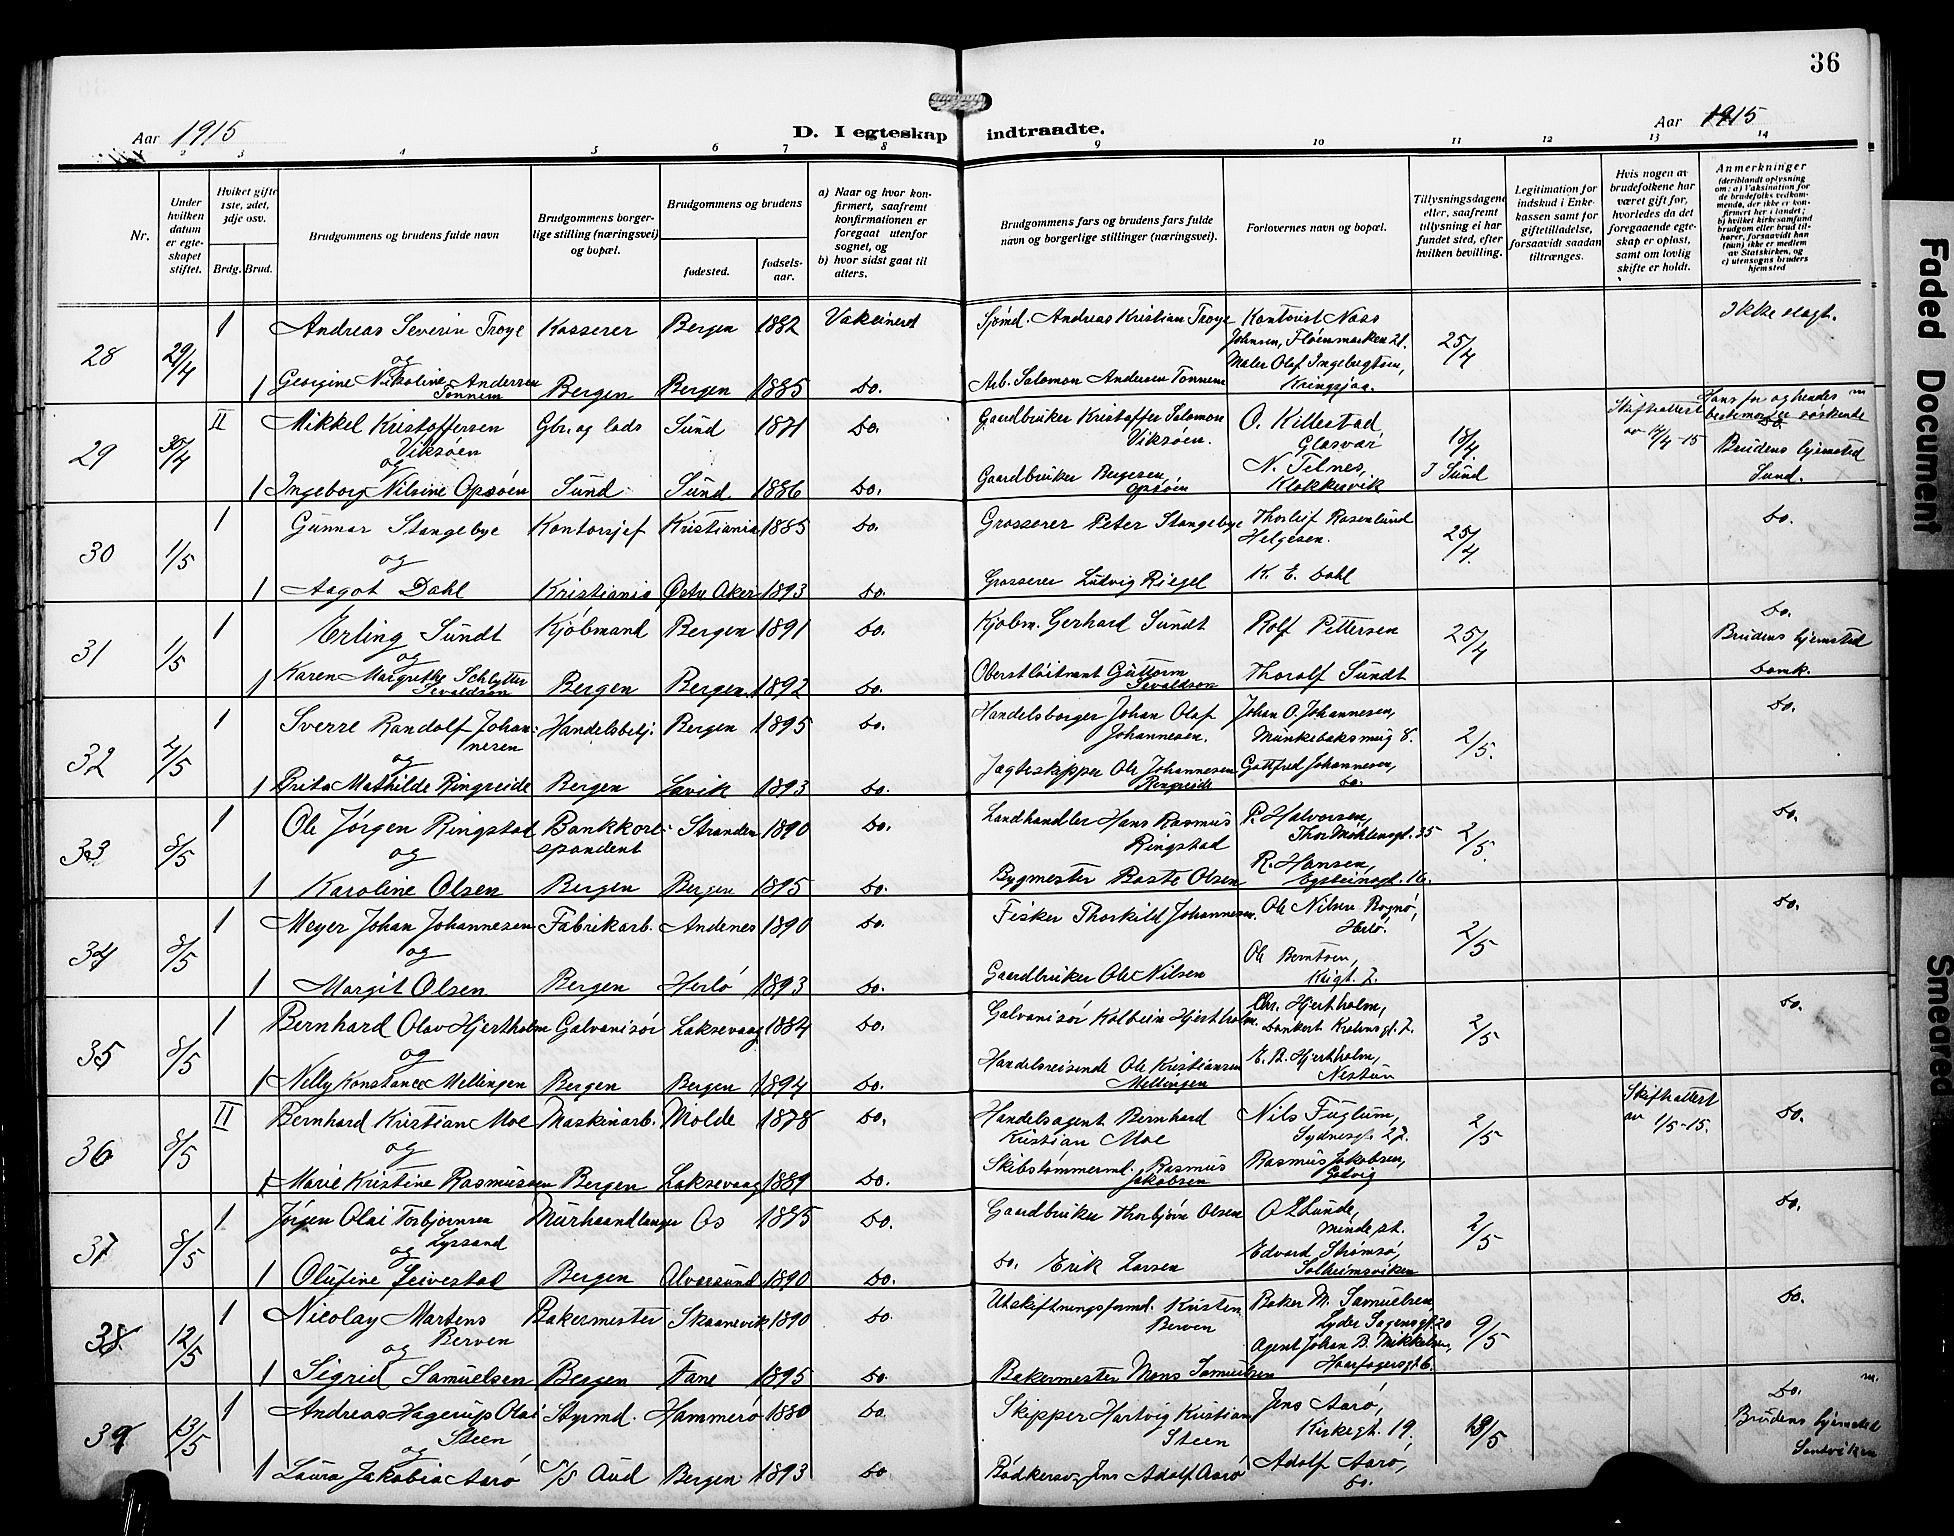 36
Aar 1915
D. I egteskap indtraadte.
Aar 1915
2 3 4 5 6 7 8 9 10 11 12 13 14
Nr.
Under hvilken datum er egteskapet stiftet.
Hvilket gifte 1ste, 2det, 3dje osv.
Brdg. Brud.
Brudgommens og brudens fulde navn
Brudgommens borgerlige stilling (næringsvei) og bopæl.
Brudgommens og brudens
fødested.
fødselsaar.
a) Naar og hvor konfirmert, saafremt konfirmationen er foregaat utenfor sognet, og
b) hvor sidst gaat til alters.
Brudgommens fars og brudens fars fulde navn og borgerlige stillinger (næringsvei).
Forlovernes navn og bopæl.
Tillysningsdagene eller, saafremt tillysning ei har fundet sted, efter hvilken bevilling.
Legitimation for indskud i Enkekassen samt for giftetilladelse, forsaavidt saadan tiltrænges.
Hvis nogen av brudefolkene har været gift før, hvorledes da det foregaaende egteskap er opløst, samt om lovlig skifte er holdt.
Anmerkninger (deriblandt oplysning om: a) Vaksination for de brudefolks vedkommende, der ikke er konfirmert her i landet; b) hvilket kirkesamfund brudgom eller brud tilhører, forsaavidt han (hun) ikke er medlem av Statskirken, og c) utensogns bruders hjemsted
28 29/4 1 Andreas Severin Troye Kasserer Bergen 1882 Vakcineret Sjømd. Andreas Kristian Troye Kontorist Nass Johnsen, Fløenmarken 21. 25/4 Ikke slagt.
og
1 Georgine Nikoline Andersen Tonnem Bergen Bergen 1885 Do. Arb. Salomon Andersen Tonnem Maler Olaf Ingebrigtsen, Kringsjaa.
29 30/4 II Mikkel Kristoffersen Viksøen Gbr. og lods Sund 1871 Do. Gaardbruker Kristoffer Salomon Viksøen. O. Killestad Glasvær 18/4 I Sund Skifteattest av 14/4-15 Hans fm og hendes bestemor er søskende Do. Brudens hjemsted Sund.
og
1 Ingeborg Nilsine Opsøen Sund Sund 1886 Do. Gaardbruker Bergesen Opsøen N. Telnes, Klokkervik
30 1/5 1 Gunnar Stangebye Kontorsjef Kristiania 1885 Do. Grosserer Peter Stangebye Thorleif Rosenlund Helgesen. 25/4 Do.
og
1 Aagot Dahl Kristiania Østre Aker 1893 Do. Grosserer Ludvig Riegel K. E. Dahl
31 1/5 1 Erling Sundt Kjøbmand Bergen 1891 Do. Kjøbm. Gerhard Sundt Rolf Pettersen 25/4 Do. Brudens hjemsted Domk.
og
1 Karen Margrethe Schlytter Sevaldson Bergen Bergen 1892 Do. Oberstløitnant Guttorm Sevaldson Thorolf Sundt
32 4/5 1 Sverre Randolf Johannesen Handelsbetj. Bergen 1895 Do. Handelsborger Johan Olaf Johannesen. Johan O. Johannesen, Munkebaksmug 8. 2/5. Do.
og
1 Brita Mathilde Ringreide Bergen Lavik 1893 Do. Jægteskipper Ole Johannesen Ringreide Gottfred Johannesen, Do.
33 8/5 1 Ole Jørgen Ringstad Bankkorrespondent Stranden 1890 Do. Landhandler Hans Rasmus Ringstad P. Halvorsen, Thor Møhlensgt. 35 2/5. Do.
og
1 Karoline Olsen Bergen Bergen 1895 Do. Bygmester Baste Olsen R. Hansen, 16.
34 8/5 1 Meyer Johan Johannesen Fabrikarb. Andenes 1890 Do. Fisker Thorkild Johannesen. Ole Nilsen Rognø, Herlø. 2/5 Do.
og
1 Margit Olsen Bergen Herlø 1893 Do. Gaardbruker Ole Nilsen Ole Berntsen, Krigt. 7.
35 8/5 1 Bernhard Olav Hjertholm Galvanisør Laksevaag 1884 Do. Galvanisør Kolbein Hjertholm. Chr. Hjertholm, Dankert Krohnsgt. 7. 2/5 Do.
og
1 Nelly Konstance Mellingen Bergen Bergen 1894 Do. Handelsreisende Ole Kristiansen Mellingen E. B. Hjertholm, Nestun
36 8/5 II Bernhard Kristian Moe Maskinarb. Molde 1878 Do. Handelsagent Bernhard Kristian Moe Nils Fuglum, Sydnesgt. 27. 2/5 Skifteattest av 1/5-15. Do.
og
1 Marie Kristine Rasmussen Bergen Laksevaag 1889 Do. Skibstømmermd. Rasmus Jakobsen Rasmus Jakobsen, Godvig
37 8/5 1 Jørgen Olai Torbjørnsen Lyssand Murhaandlanger Os 1885 Do. Gaardbruker Thorbjørn Olsen O. Lunde, Minde st. 2/5 Do.
og
1 Olufine Leivestad Bergen Alversund 1890 Do. Do. Erik Larsen Edvard Strømsø, Solheimsviken
38 12/5 1 Nicolay Martens Berven Bakermester Skaanevik 1890 Do. Utskiftningsformd. Kristen Berven Baker M. Samuelsen, Lyder Sagensgt. 20 9/5 Do.
og
1 Sigrid Samuelsen Bergen Fane 1895 Do. Bakermester Mons Samuelsen Agent Johan B. Mikkelsen, Haarfagersgt 6.
39 13/5 1 Andreas Hagerup Olai Steen Styrmd. Hammerø 1880 Do. Skipper Hartvig Kristian Steen Jens Aarø, Kirkegt. 19. 9/5 Do. Brudens hjemsted Sandviken
og
1 Laura Jakobia Aarø S/S Aud Bergen 1893 Do Bødkersv. Jens Adolf Aarø Adolf Aarø, Do.
Faded Document
Smeared